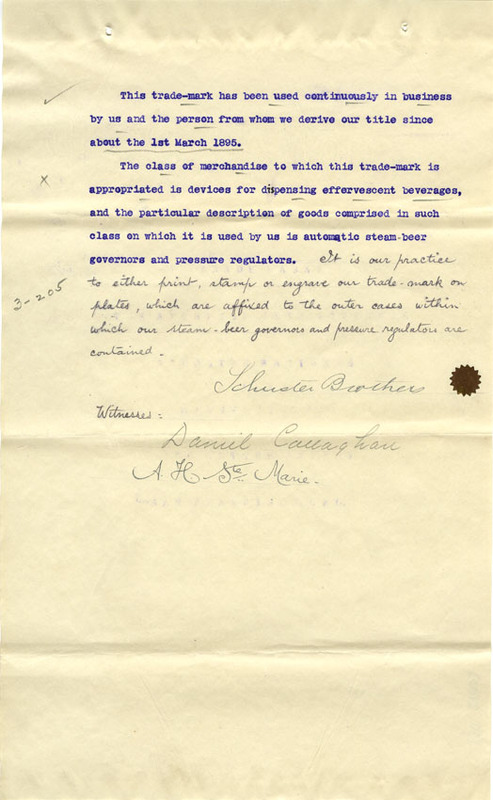 This trade-mark has been used continuously in business
by us and the person from whom we derive our title since
about the 1st March 1895.
The class of merchandise to which this trade-mark is
x
appropriated is devices for dispensing effervescent beverages,
and the particular description of goods comprised in such
class on which it is used by us is automatic steam-beer
governors and pressure regulators. It is our practice
3-205
to either print, stamp or engrave our trade-mark on
plates, which are affixed to the outer cases within
which our steam-beer governors and pressure regulators are
contained.
Schuster Brothers
Witnesses:
Daniel Callaghan
A. H. Ste. Marie.